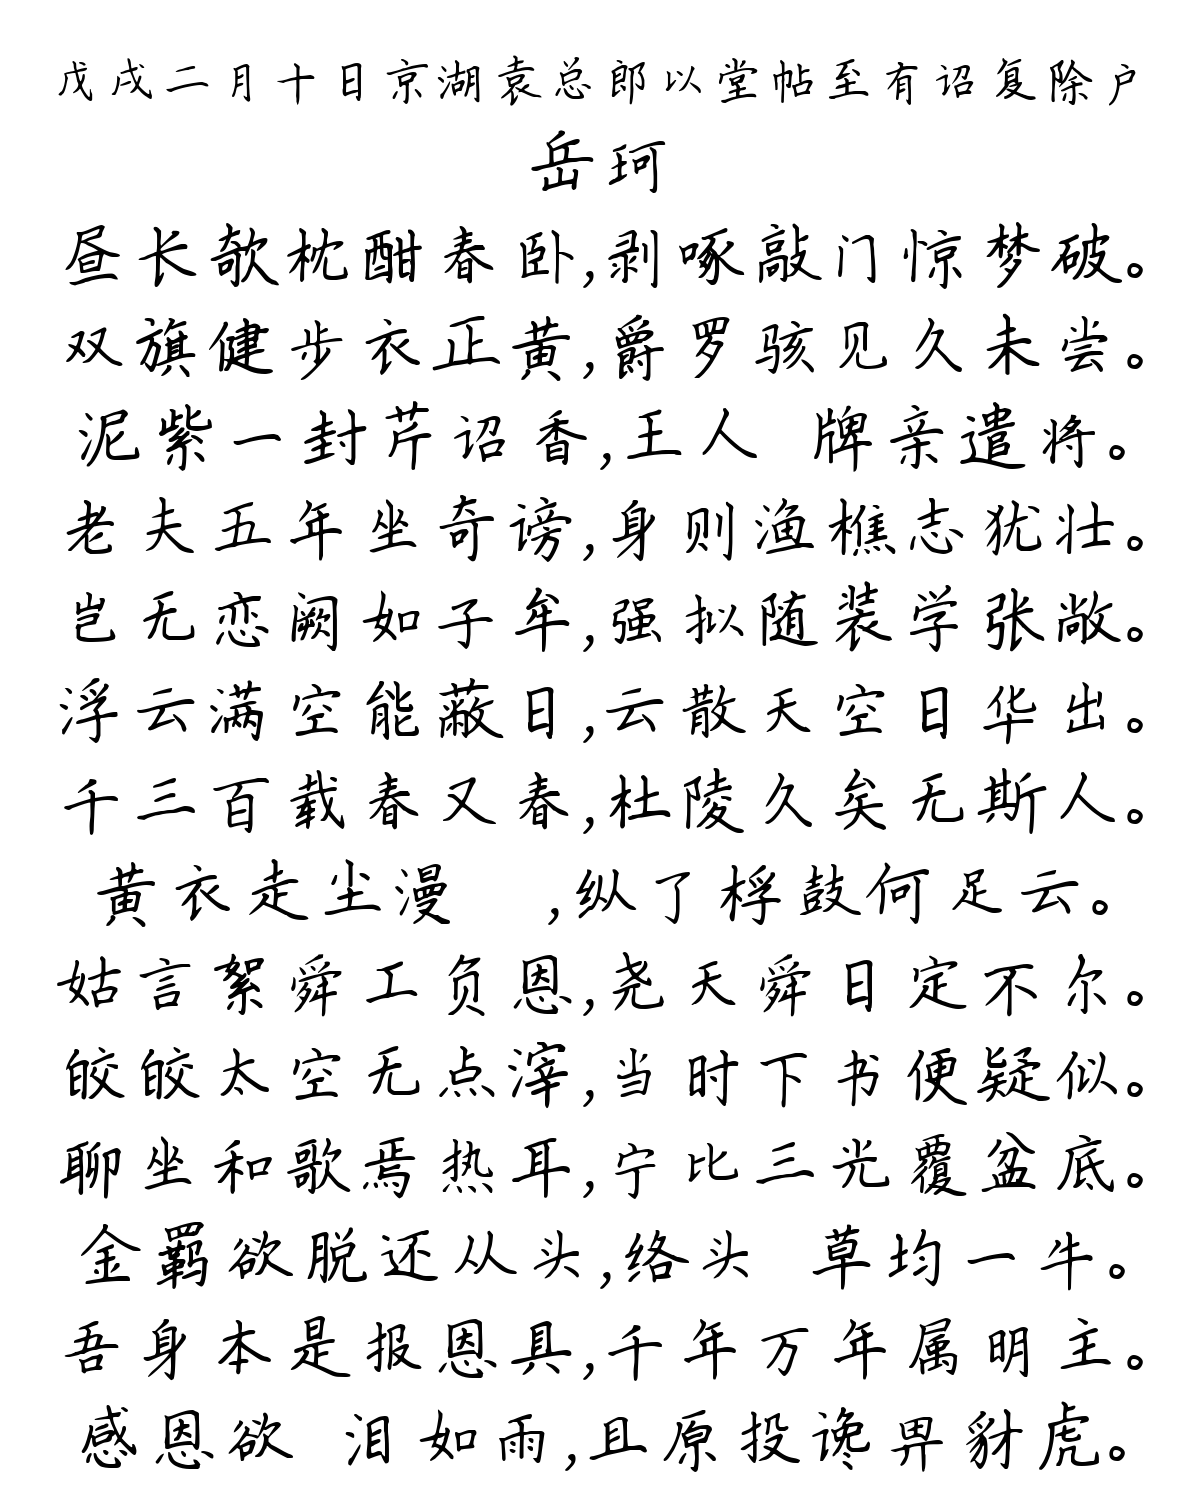 戊戌二月十日京湖袁总郎以堂帖至有诏复除户
岳珂
昼长欹枕酣春卧,剥啄敲门惊梦破。
双旗健步衣正黄,爵罗骇见久未尝。
泥紫一封芹诏香,王人 牌亲遣将。
老夫五年坐奇谤,身则渔樵志犹壮。
岂无恋阙如子牟,强拟随装学张敞。
浮云满空能蔽日,云散天空日华出。
千三百载春又春,杜陵久矣无斯人。
黄衣走尘漫 ,纵了桴鼓何足云。
姑言絮舜工负恩,尧天舜日定不尔。
皎皎太空无点滓,当时下书便疑似。
聊坐和歌焉热耳,宁比三光覆盆底。
金羁欲脱还从头,络头 草均一牛。
吾身本是报恩具,千年万年属明主。
感恩欲 泪如雨,且原投谗畀豺虎。